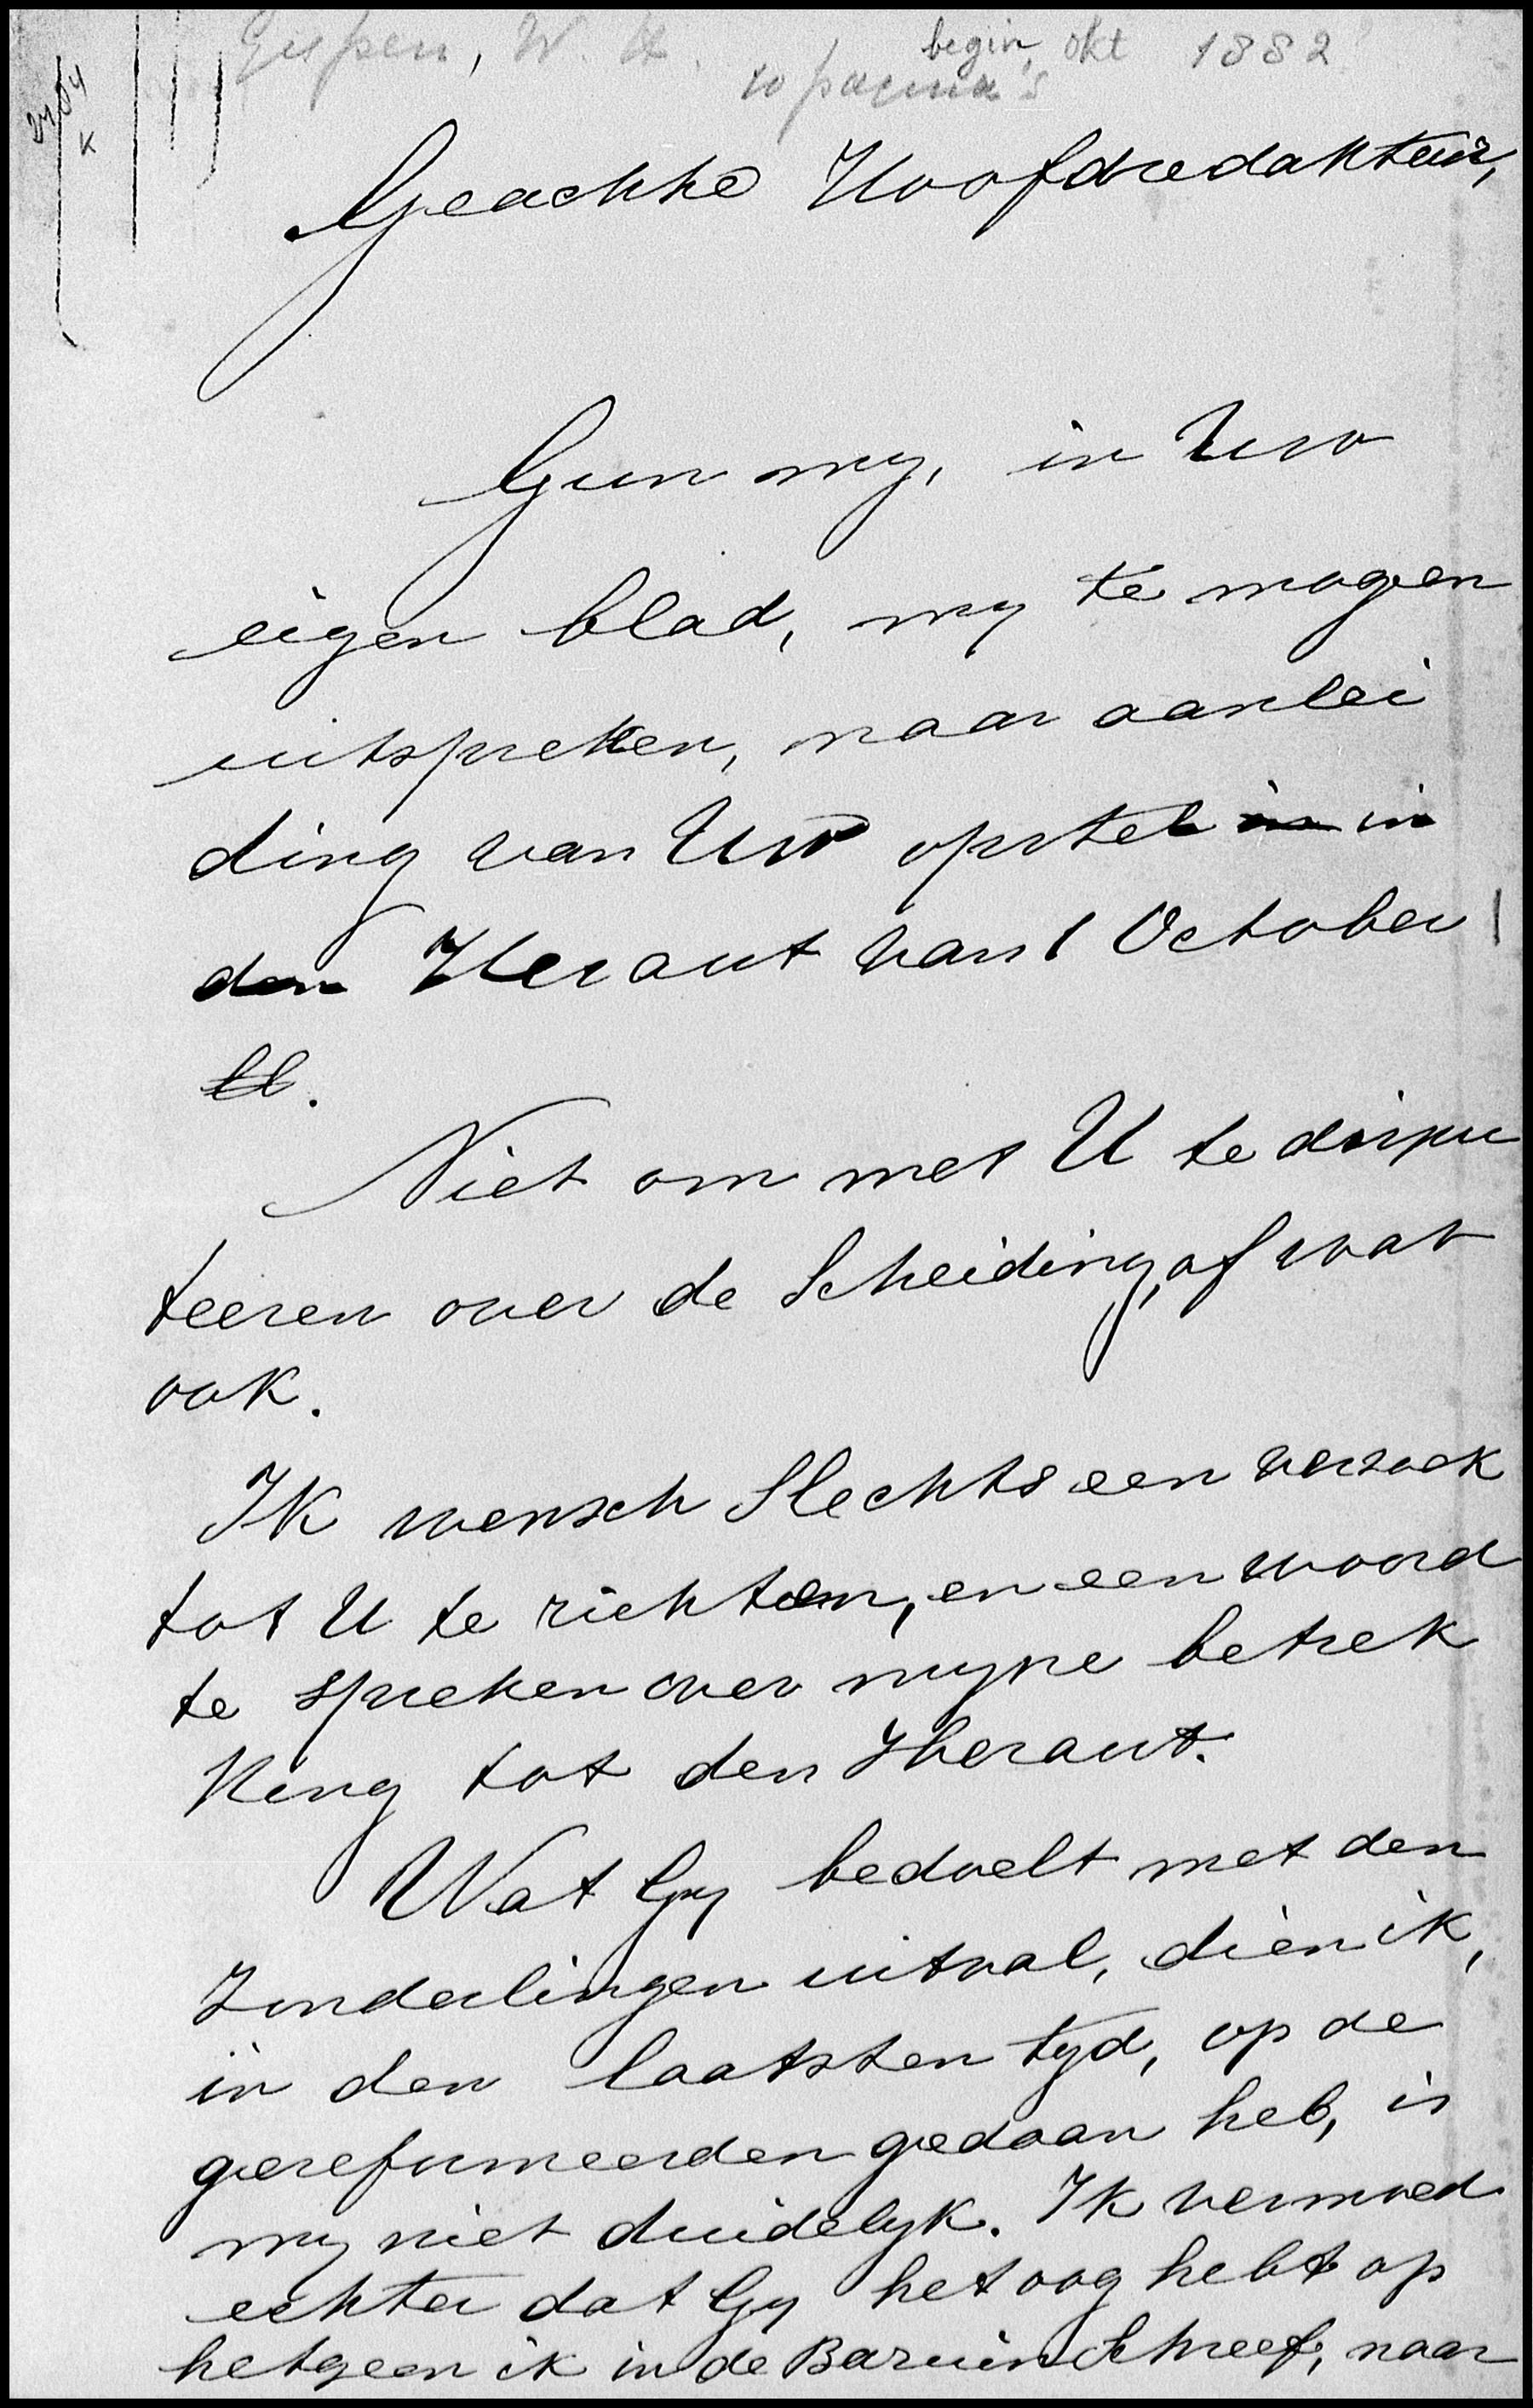 Gispen, W. H. begin okt 1882
10 pagina's
2404
K
Geachte Hoofdredakteur,
Gun my, in Uw
eigen blad, my te mogen
uitspreken, naar aanlei
ding van Uw opstel in in
den Heraut van 1 October
ll.
Niet om met U te dispu
teeren over de Scheiding, of wat
ook.
Ik wensch Slechts een verzoek
tot U te richten, en een woord
te spreken over myne betrek
king tot den Heraut.
Wat Gy bedoelt met den
Zonderlingen uitval, dien ik,
in den laatsten tyd, op de
gereformeerden gedaan heb, is
my niet duidelyk. Ik vermoed
echter dat Gy het oog hebt op
hetgeen ik in de Bazuin Schreef, naar